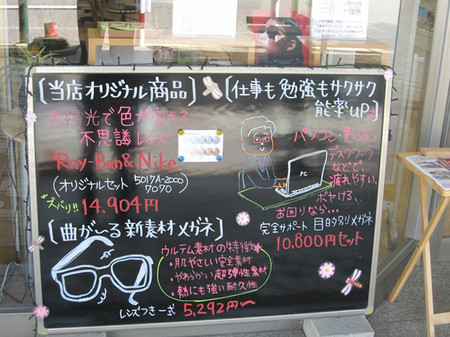 〔当店オリジナル商品〕
太陽光で色が変わる
不思議レンズ
Ray-Ban & Nike
(オリジナルセット 5017A-2000
7070
ズバリ!! 14.904円
〔曲が〜る新素材メガネ〕
ウルテム素材の特徴
・肌やさしい安全素材
・やわらかい超弾性素材
・熱にも強い耐久性
レンズつき一式 5,292円〜
〔仕事も勉強もサクサク
能率UP〕
パソコン
デスクワーク
などで
疲れやすい、
ボヤける、
お困りなら…
PC
完全サポート 目カラクリメガネ
10,800円セット